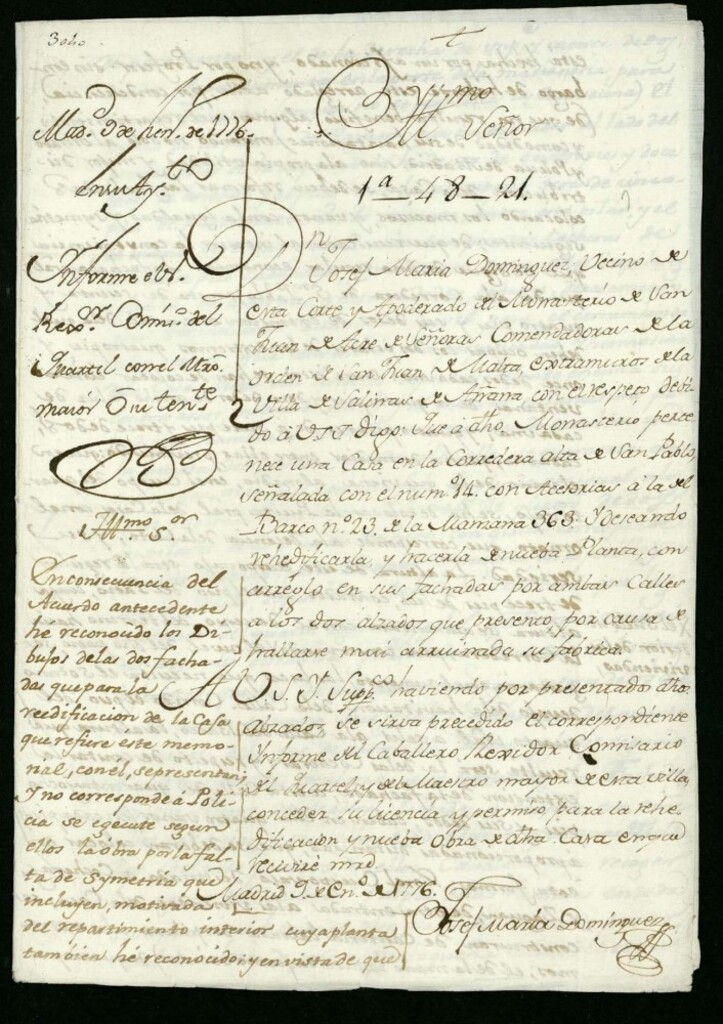 3oho
Yllmo
Señor
1ª—48—21.
Mad. 9 de hen.º de 1776.
En su Ay.to
Informe el Sr.
Rex.or Comis.º del
Quartel con el Mtro.
maior Theniente
Yllmo. S.or
En consecuencia del
Acuerdo antecedente
hé reconocido los Di-
bujos de las dos facha-
das que para la
reedificacion de la Casa
que refiere éste memo-
rial, con él, se presentan,
Y no corresponde á Poli-
cia se egecute segun
ellos la obra por la fal-
ta de Symetría que
incluyen, motivadas
del repartimiento interior cuya planta
tambien hé reconocido: y en vista de que
Dn. Josef Maria Dominguez, Vecino de
esta Corte y Apoderado del Monasterio de San
Juan de Acre de Señoras Comendadoras de la
orden de San Juan de Malta, extramuros de la
Villa de Salinas de Añana, con el respeto debi-
do à V.S.Y. digo: Que a dho. Monasterio perte-
nece una Casa en la Corredera alta de San Pablo,
señalada con el num.º 14. con Acesorias à la del
Barco nº. 23. de la Manzana 363. Y deseando
rehedificarla, y hacerla de nueba Planta, con
arreglo en sus fachadas por ambas Calles
a los dos alzados que presento, por causa de
hallarse mui arruinada su fabrica.
A V.S.Y. Supp.co haviendo por presentados dhos.
alzados, se sirva precedido el correspondiente
Ynforme del Caballero Rexidor Comisario
del Quartel, y del Maestro mayor de esta villa,
conceder su licencia y permiso para la rehe-
dificacion y nueba obra de dha. Casa en que
recivirè mrd.
Madrid 9. de En.º de 1776.
Josef Maria Dominguez